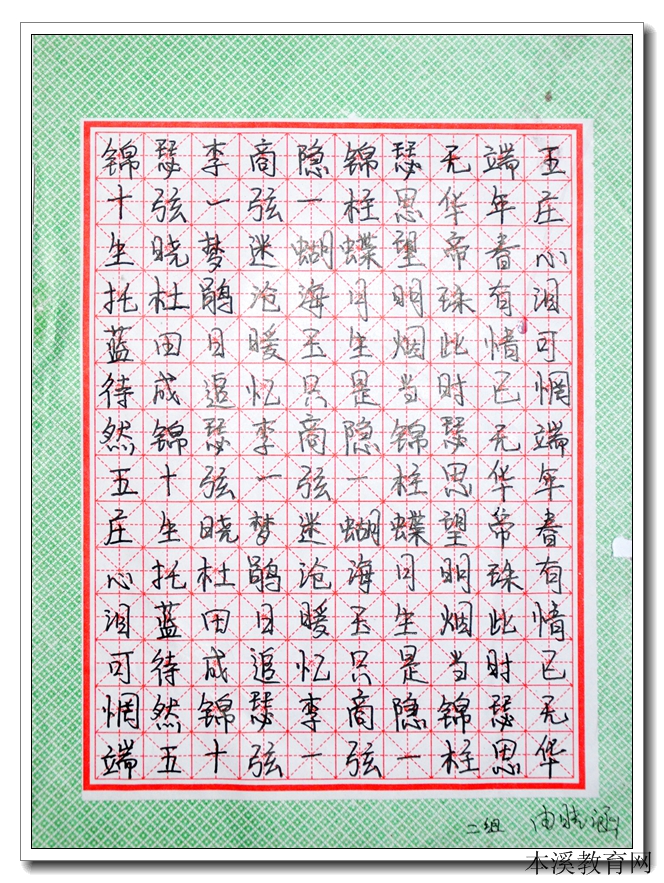 锦瑟李商隐锦瑟无端五
十弦一弦一柱思华年庄
生晓梦迷蝴蝶望帝春心
托杜鹃沧海月明珠有泪
蓝田日暖玉生烟此情可
待成追忆只是当时已惘
然锦瑟李商隐锦瑟无端
五十弦一弦一柱思华年
庄生晓梦迷蝴蝶望帝春
心托杜鹃沧海月明珠有
泪蓝田日暖玉生烟此情
可待成追忆只是当时已
惘然锦瑟李商隐锦瑟无
端五十弦一弦一柱思华
二组 由晓涵
本溪教育网